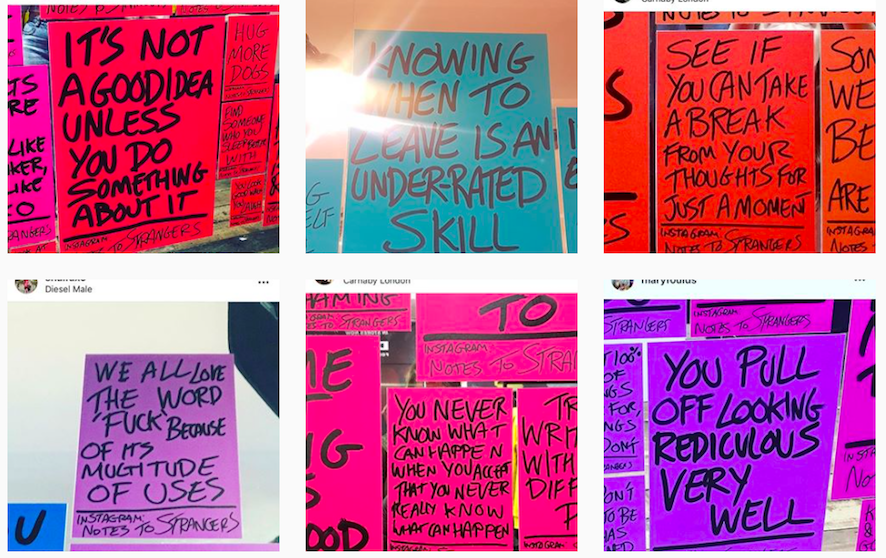 NOTES TO STRANGERS
IT'S NOT
A GOOD IDEA
UNLESS
YOU DO
SOMETHING
ABOUT IT
INSTAGRAM:
NOTES TO STRANGERS
HUG
MORE
DOGS
FIND
SOMEONE
WHO YOU
SLEEP BETTER
WITH
RE
LIKE
KNOWING
WHEN TO
LEAVE IS AN
UNDER-RATED
SKILL
Carnaby London
NOTES TO STRANGERS
SEE IF
YOU CAN TAKE
A BREAK
FROM YOUR
THOUGHTS FOR
JUST A MOMENT
INSTAGRAM:
NOTES TO STRANGERS
WE
BE
ARE
NOTES
Diesel Male
WE ALL LOVE
THE WORD
'FUCK' BECAUSE
OF ITS
MUGTITUDE
OF USES
INSTAGRAM:
NOTES TO STRANGERS
U
Carnaby London
INSTAGRAM:
NOTES TO STRANGERS
TO
INSTAGRAM:
NOTES TO STRAN
YOU NEVER
KNOW WHAT
CAN HAPPEN
WHEN YOU ACCEPT
THAT YOU NEVER
REALLY KNOW
WHAT CAN HAPPEN
TR
WRIT
WITH
DIFF
G
OOD
maryfourus
STRANGERS
INSTAGRAM:
NOTES TO STRANGERS
YOU PULL
OFF LOOKING
REDICULOUS
VERY
WELL
100%
OF
FOR,
DON'T
TO BE